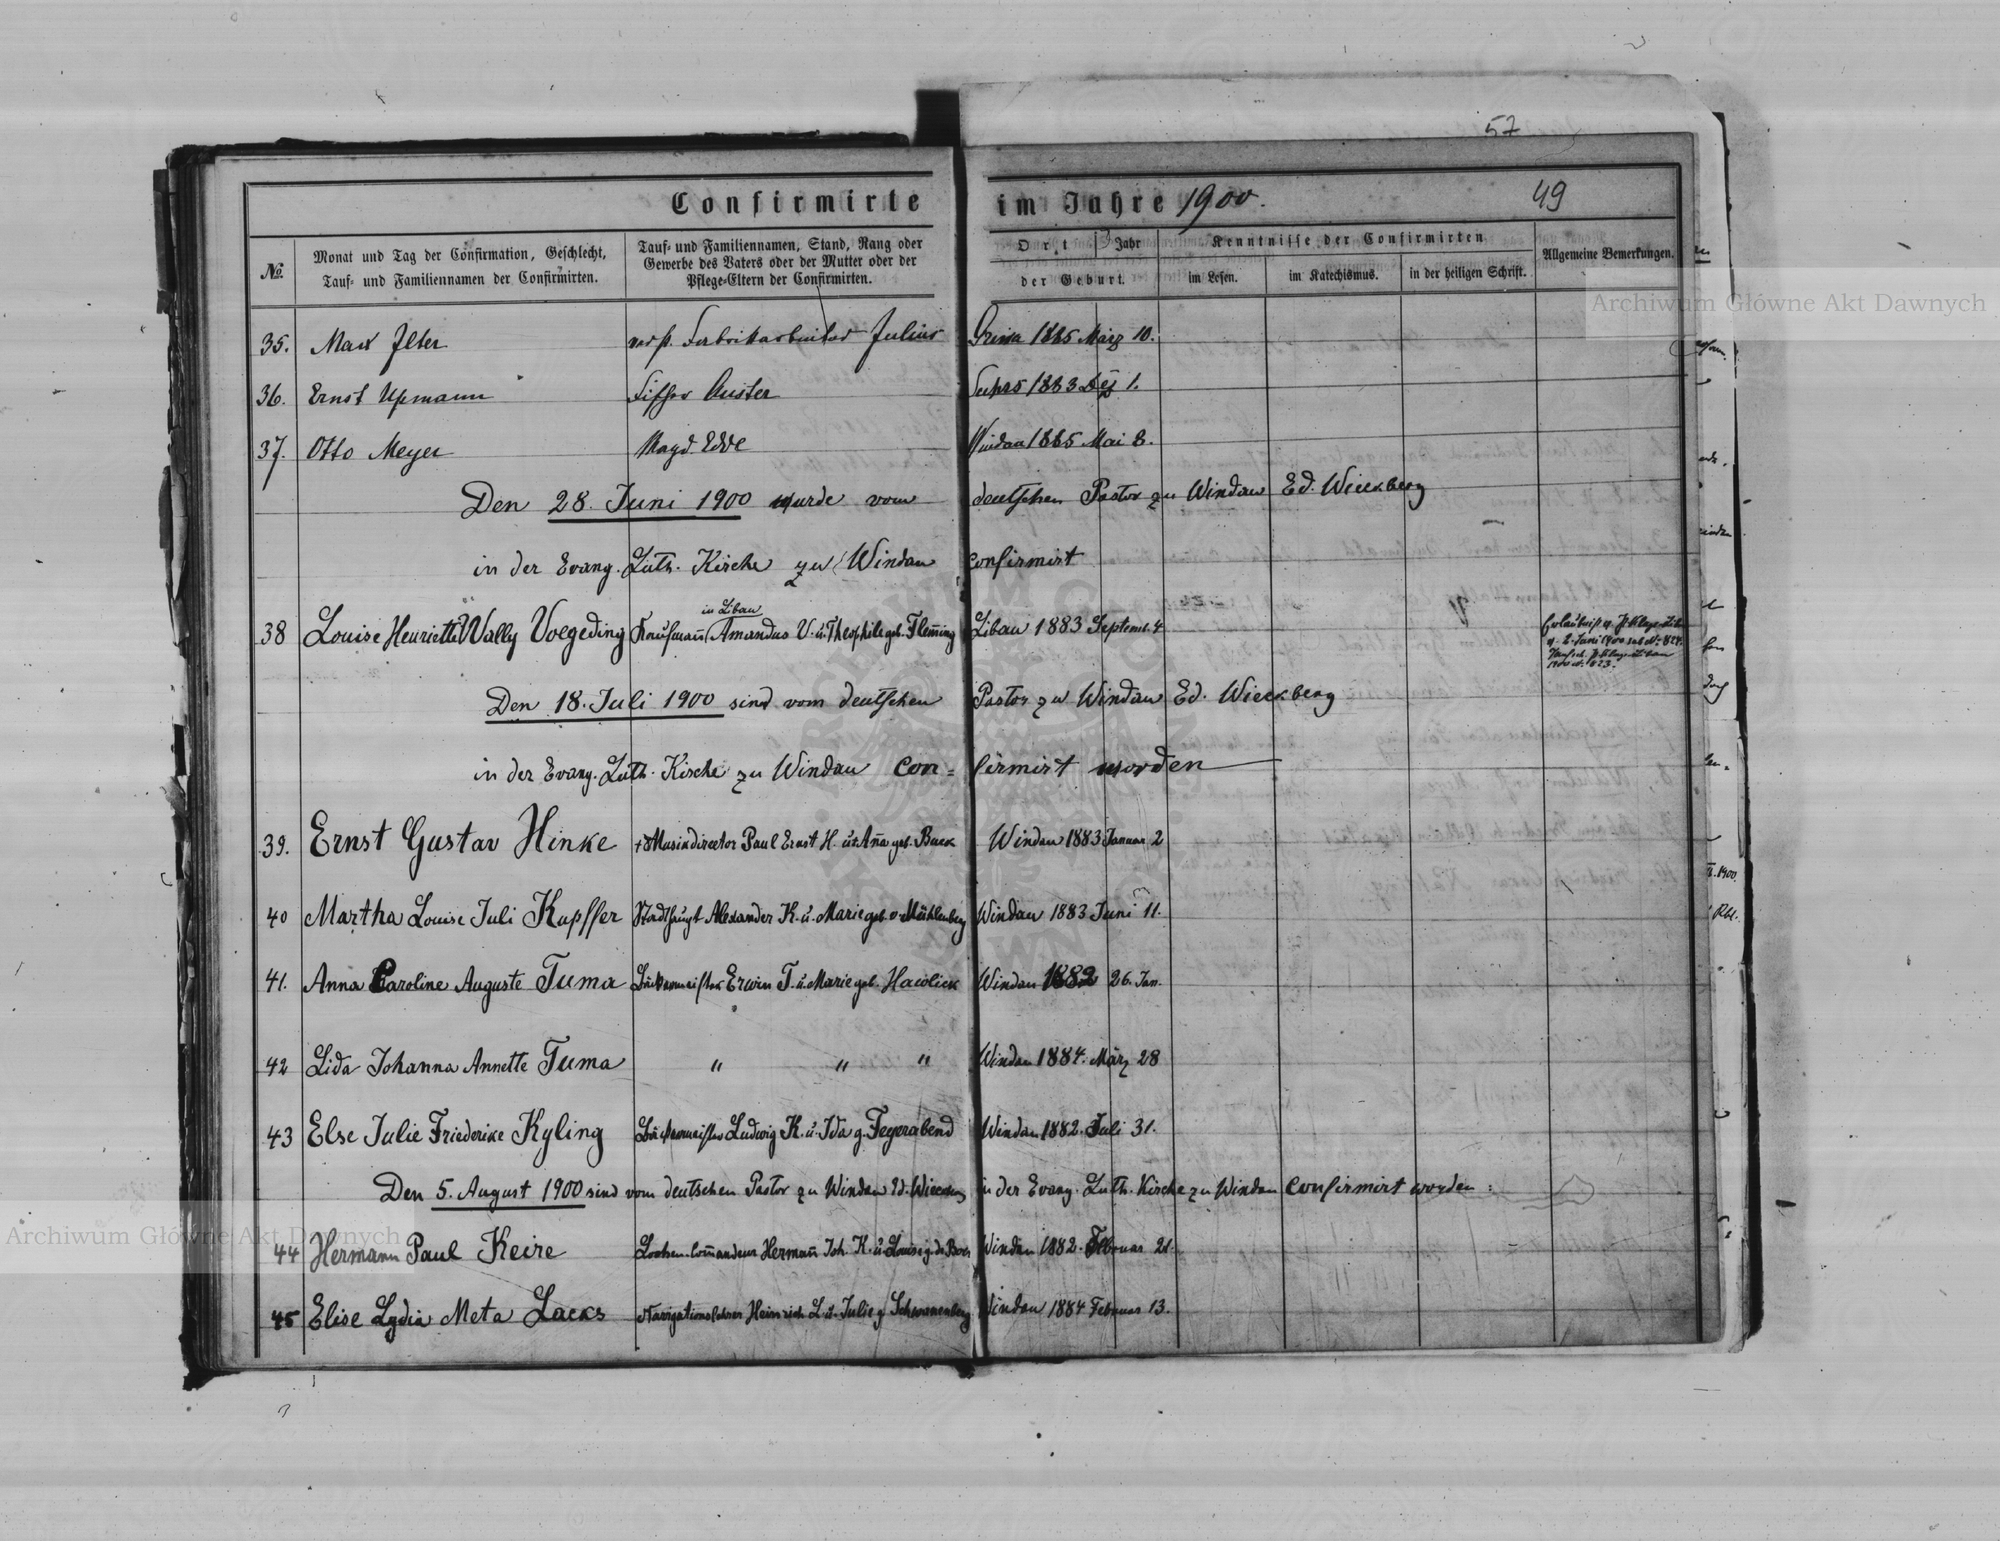 57
Confirmirte im Jahre 1900. 49
No. Monat und Tag der Confirmation, Geschlecht, Tauf- und Familiennamen der Confirmirten.
Tauf- und Familiennamen, Stand, Rang oder Gewerbe des Vaters oder der Mutter oder der Pflege-Eltern der Confirmirten.
Ort Jahr der Geburt.
Kenntnisse der Confirmirten
im Lesen. im Katechismus. in der heiligen Schrift.
Allgemeine Bemerkungen.
35. Max Fabrikarbeiter Julius 1885 März 10.
36. Ernst Upmann Auster 1883 Dez 1.
37. Otto Meyer Magd Edde Windau 1885 Mai 8.
Den 28. Juni 1900 wurde vom deutschen Pastor zu Windau Ed. Wieckberg
in der Evang. Luth. Kirche zu Windau confirmirt
in Libau
38 Louise Henriette Wally Voegeding Kaufmann Amandus V. u. Theophile geb. Flem̄ing Libau 1883 Septemb. 4
Den 18. Juli 1900 sind vom deutschen Pastor zu Windau Ed. Wieckberg
in der Evang. Luth. Kirche zu Windau con= firmirt worden
39. Ernst Gustav Hinke Musikdirector Paul Ernst H. u. An̄a geb. Buck Windau 1883 Januar 2
40 Martha Louise Juli Kupffer Stadthaupt Alexander K. u. Marie geb. v. Mühlenberg Windau 1883 Juni 11.
41. Anna Caroline Auguste Tuma Bäckermeister Erwin T. u. Marie geb. Hawlick Windau 1882 26. Jan.
42 Lida Johanna Annette Tuma " " " Windau 1884. März 28
43 Else Julie Friederike Kyling Bäckermeister Ludwig K. u. Ida g. Feyerabend Windau 1882. Juli 31.
Den 5. August 1900 sind vom deutschen Pastor zu Windau Ed. Wieckberg in der Evang. Luth. Kirche zu Windau confirmirt worden:
44 Hermann Paul Keire Lootsen-Com̄andeur Herman̄ Joh. K. u. Louise g. de Boer Windau 1882. Februar 21.
45 Elise Lydia Meta Lacks Navigationslehrer Heinrich L. u. Julie g. Schwanenberg Windau 1884 Februar 13.
Archiwum Główne Akt Dawnych
Archiwum Główne Akt Dawnych